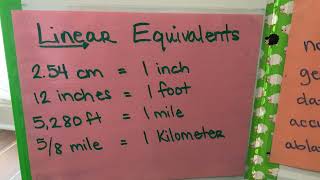 Linear Equivalents
2.54 cm = 1 inch
12 inches = 1 foot
5,280 ft = 1 mile
5/8 mile = 1 Kilometer